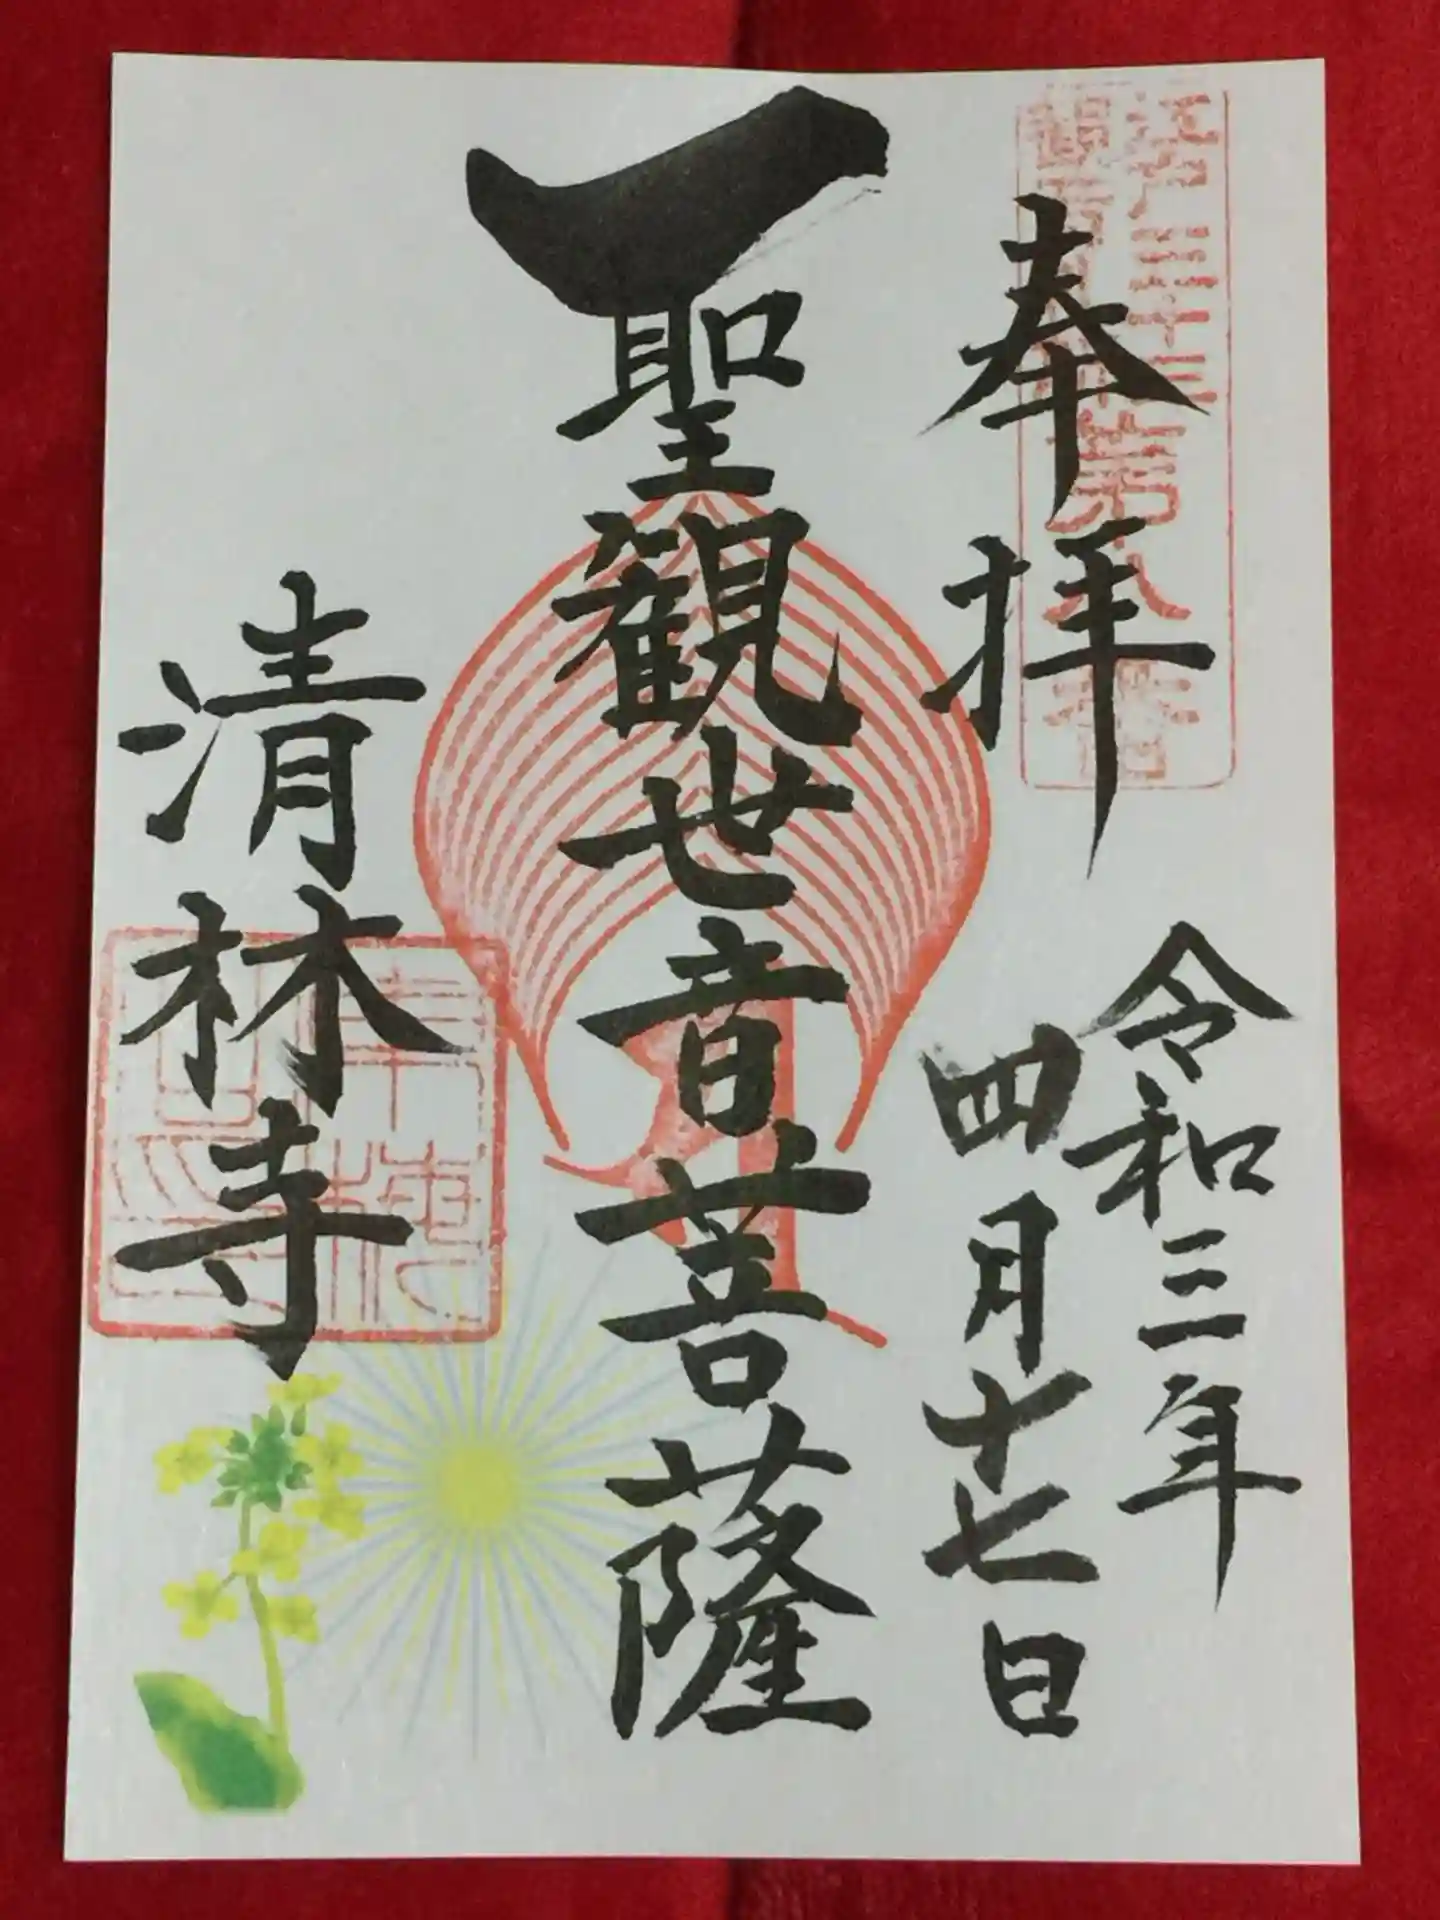 江戸三十三
観音札所第八番
奉拝
令和三年
四月十七日
聖観世音菩薩
清林寺